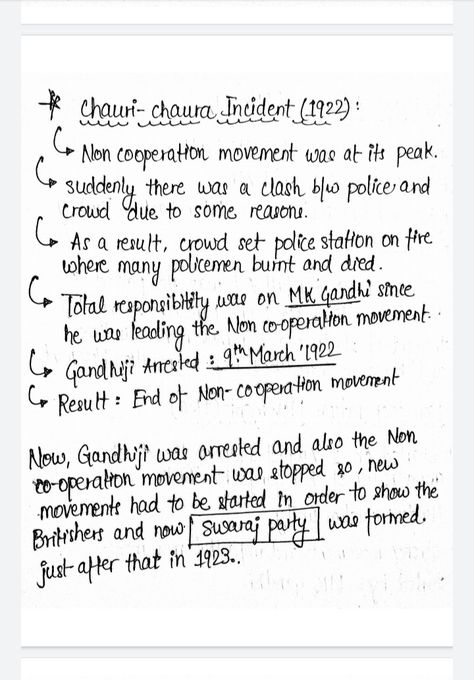 * Chauri-chaura Incident (1922) :
↳ Non cooperation movement was at its peak.
↳ suddenly there was a clash b/w police and
crowd due to some reasons.
↳ As a result, crowd set police station on fire
where many policemen burnt and died.
↳ Total responsibility was on MK Gandhi since
he was leading the Non co-operation movement.
↳ Gandhiji Arrested : 9th March '1922
↳ Result : End of Non-cooperation movement
Now, Gandhiji was arrested and also the Non
co-operation movement was stopped so, new
movements had to be started in order to show the
Britishers and now Swaraj party was formed.
just after that in 1923..